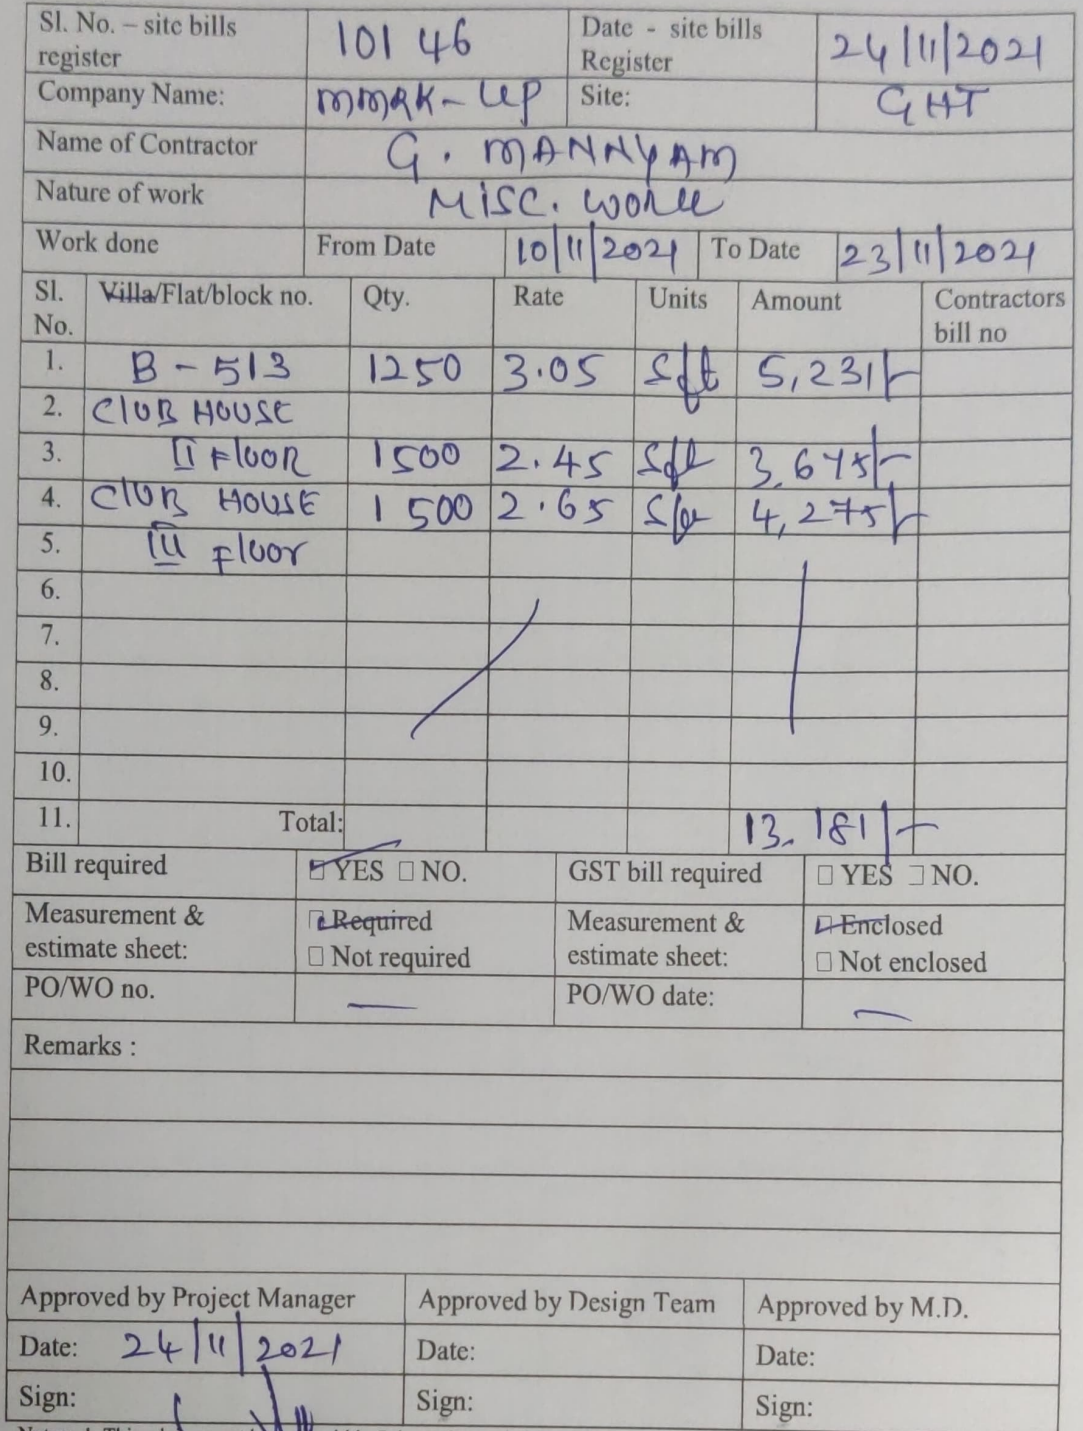 Sl. No. – site bills register 101 46 Date - site bills Register 24/11/2021
Company Name: MMRK-LLP Site: GHT
Name of Contractor G. MANNYAM
Nature of work MISC. WORK
Work done From Date 10/11/2021 To Date 23/11/2021
Sl. No. Villa/Flat/block no. Qty. Rate Units Amount Contractors bill no
1. B - 513 1250 3.05 Sft 5,231/-
2. ClUB HOUSE
3. II FlOOR 1500 2.45 Sft 3,675/-
4. ClUB HOUSE 1500 2.65 Sft 4,275/-
5. III Floor
6.
7.
8.
9.
10.
11. Total: 13,181/-
Bill required YES NO. GST bill required YES NO.
Measurement & estimate sheet: Required Not required Measurement & estimate sheet: Enclosed Not enclosed
PO/WO no. — PO/WO date: —
Remarks :
Approved by Project Manager Approved by Design Team Approved by M.D.
Date: 24/11/2021 Date: Date:
Sign: Sign: Sign: